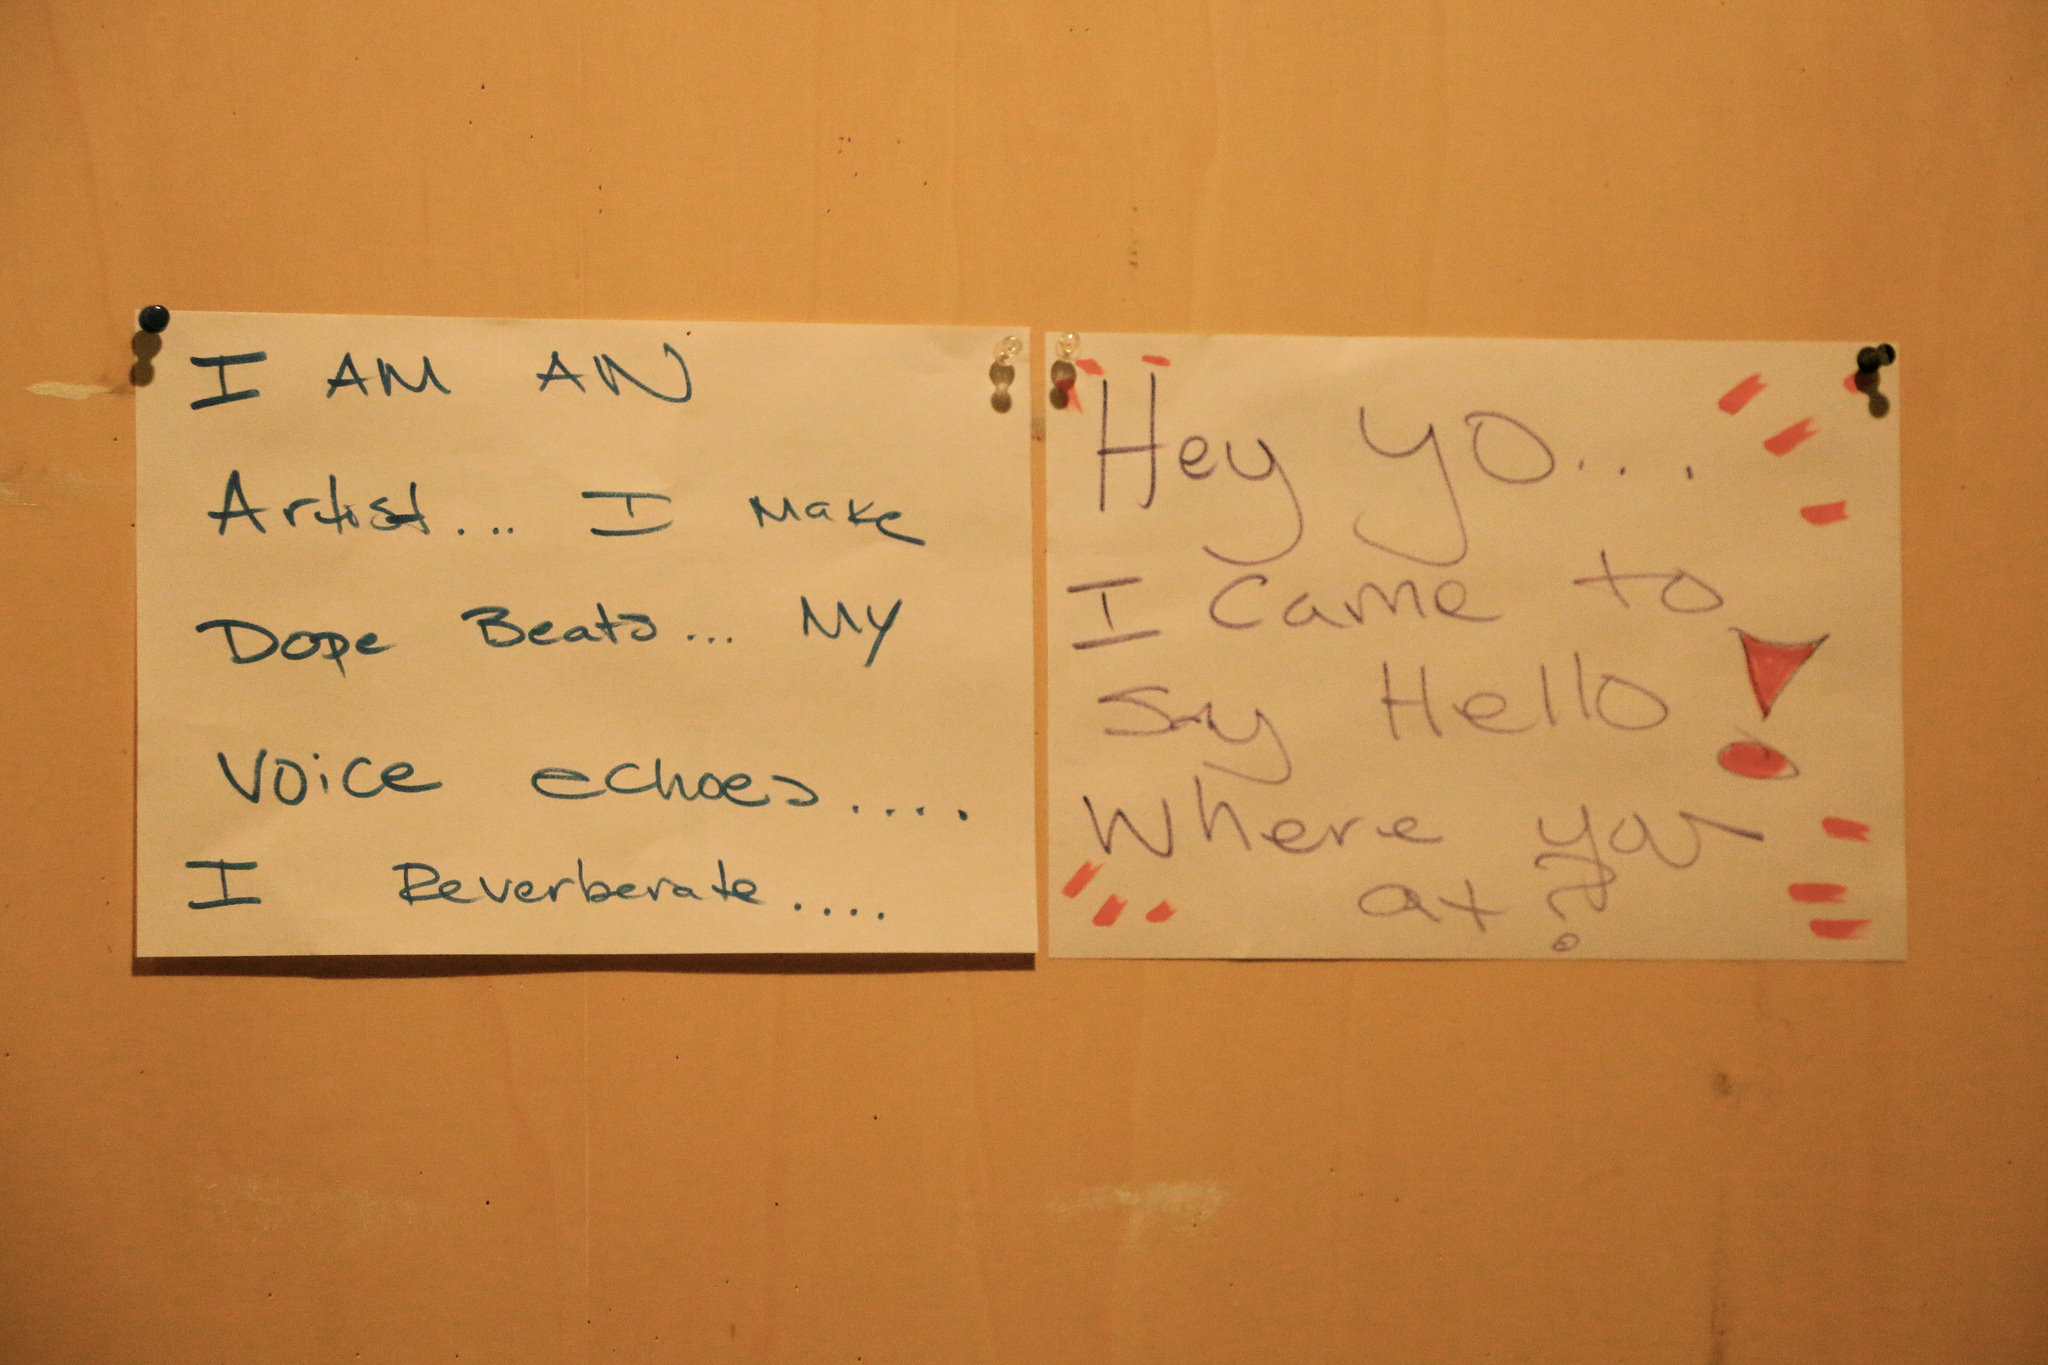 I AM AN
Artist... I Make
Dope Beats... My
Voice echoes....
I Reverberate....
Hey yo...
I Came to
Say Hello!
Where you
at?